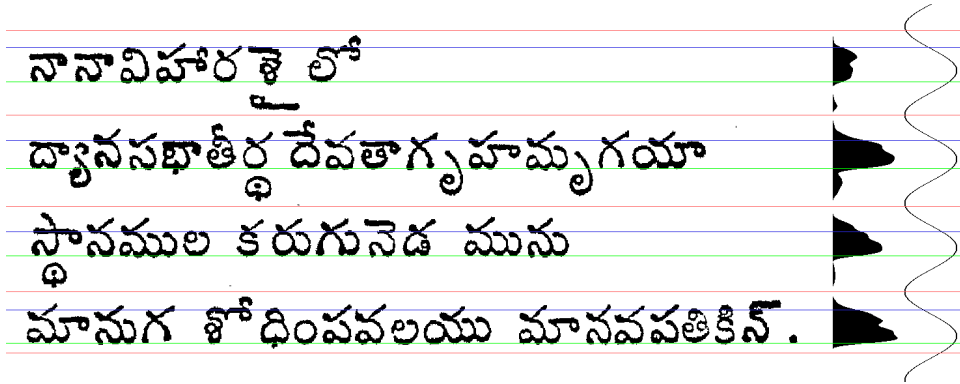 నానావిహారశైలో
ద్యానసభాతీర్థ దేవతాగృహమృగయా
స్థానముల కరుగునెడ మును
మానుగ శోధింపవలయు మానవపతికిన్.